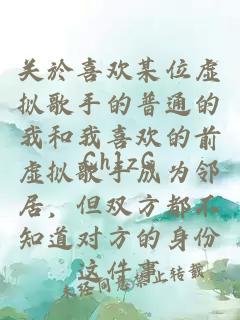 关於喜欢某位虚
拟歌手的普通的
我和我喜欢的前
虚拟歌手成为邻
居，但双方都不
知道对方的身份
这件事
Ch1zC
未经同意禁止转载